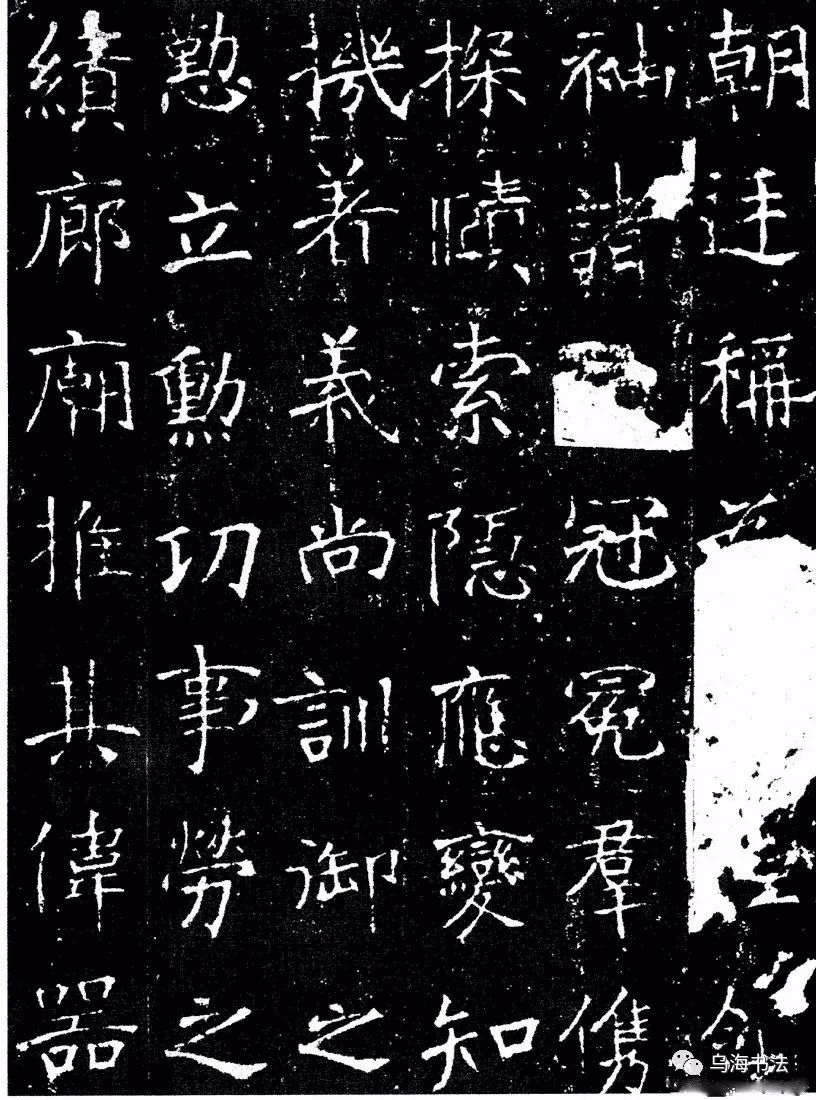 朝廷稱
袖諸冠冕羣儁
探賾索隱應變知
機著義尚訓御之
懃立勳功事勞之
績廊廟推其偉器
乌海书法